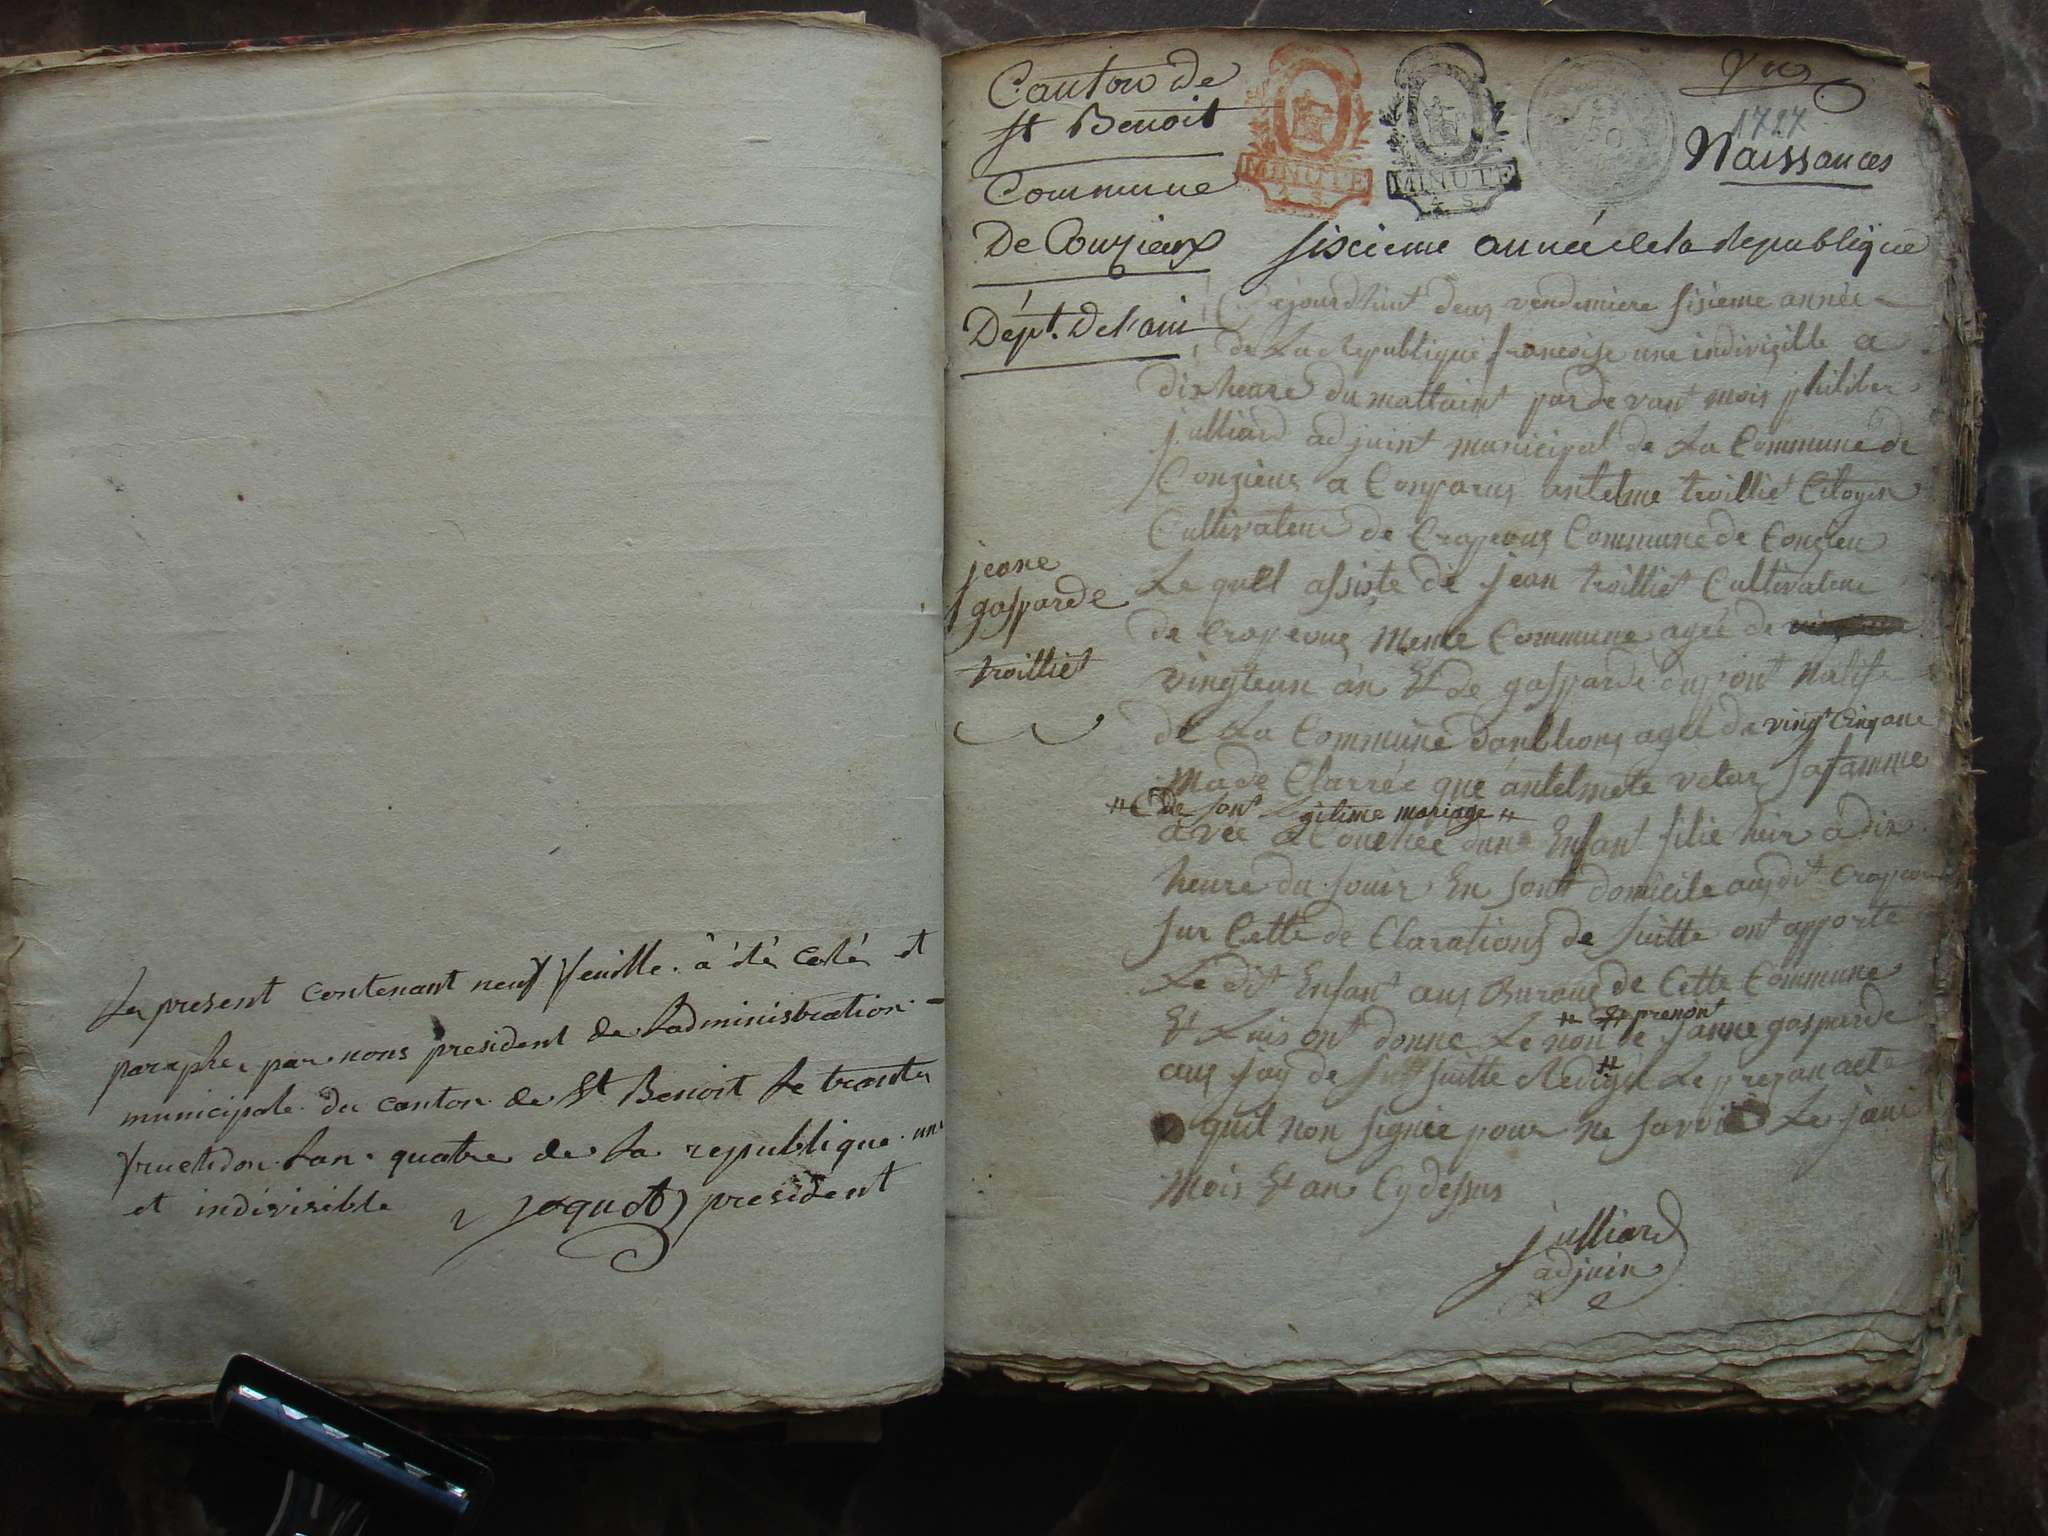 Le present contenant neuf feuille. à été coté et
paraphé, par nous president de Ladministration -
municipale du canton de St Benoit Le trante
fructidor Lan. quatre de La republique. une
et indivisible Joquet president
Canton de
St Benoit
Commune
De Conzieux
Dépt. De l'ain
MINUTE
MINUTE
4 S.
1727
Naissances
sixieme année de la Republique
Cejourdhuit deux vendemiere sisieme année
de La Republique francoise une indivizible a
dix heure du mattaint par devant mois philiber
julliard adjuint municipal de La Commune de
Conzieux a Conparus antelme troilliet Citoyen
Cultivateur de Crapeoux Commune de Conzieu
Le quel assiste de jean troilliet Cultivateur
de Crapeoux Meme Commune agée de
vingteun an Et de gasparde dupont Natif
de La Commune danblions agée de vingt Cinq ane
Ma de Clarrée que antelmete vetar sa famme
" de sont Legitime mariage "
avee a Couchée dune Enfant filie heir a dix
heure du souir En sont domicile ausdit Crapeoux
sur Cette de Clarations de suitte ont apporté
Le dit Enfant aux Buroux de Cette Commune
" Et prenont
Et Luis ont donne Le non de janne gasparde
aux jay de suitte Redigée Le prezan acte
quil non signée pour ne savoir Le jour
Mois Et an Cy dessus
julliard
adjuin
jeane
gasparde
troilliet